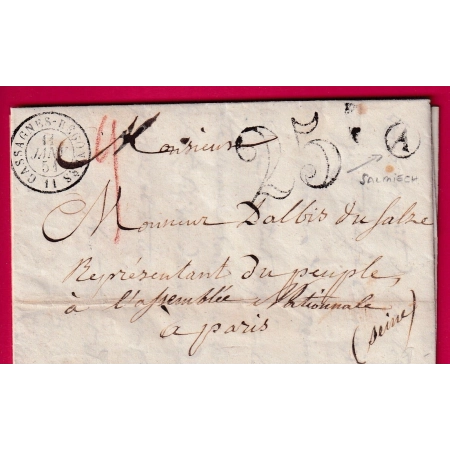 CASSAGNES-BEGONHES 11
11
JANV
51
25
A
SALMIECH
Monsieur
Monsieur Dalbis du Salze
Représentant du peuple,
à l'assemblée Nationnale
à paris
(seine)